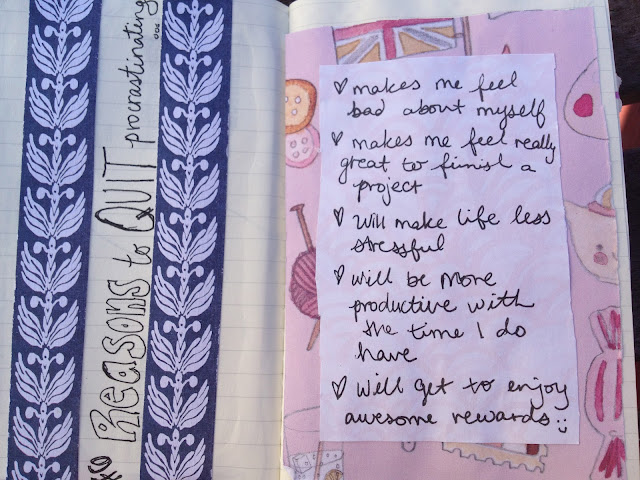 Reasons to QUIT procrastinating
♡ makes me feel
bad about myself
♡ makes me feel really
great to finish a
project
♡ Will make life less
stressful
♡ will be more
productive with
the time I do
have
♡ will get to enjoy
awesome rewards :)